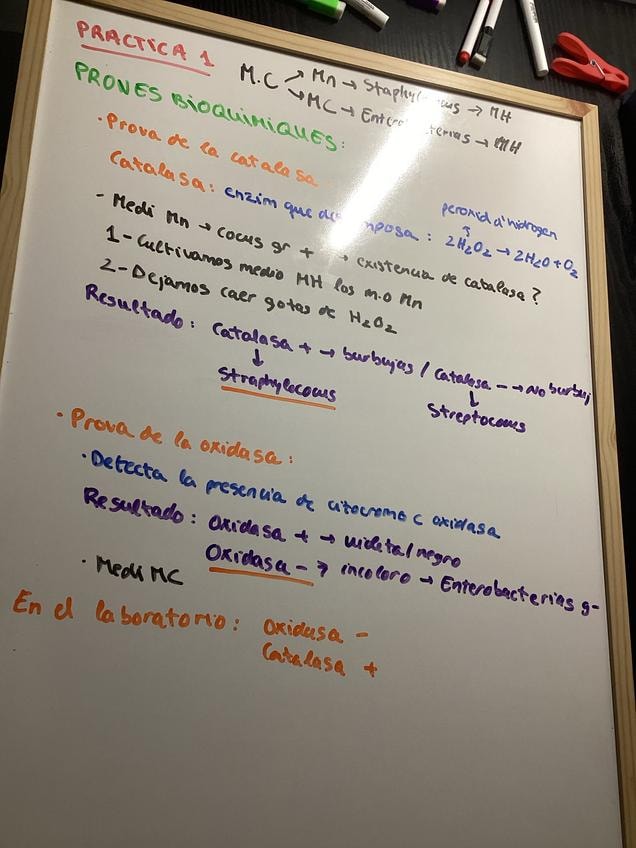 PRACTICA 1
M.C ↗ Mn → Staphylococus → MH
↘ MC → Enterobacterias → MH
PROVES BIOQUIMIQUES:
· Prova de la catalasa
Catalasa: enzim que descomposa : 2H₂O₂ → 2H₂O + O₂
peroxid d'hidrogen
- Medi Mn → cocus gr + → existencia de catalasa?
1- Cultivamos medio MH los m.o Mn
2- Dejamos caer gotas de H₂O₂
Resultado: Catalasa + → burbujas / Catalasa - → No burbuj
↓ Straphylecocus ↓ Streptococus
· Prova de la oxidasa:
· Detecta la presencia de citocromo c oxidasa
Resultado: Oxidasa + → violeta/negro
Oxidasa - → incoloro → Enterobacterias g-
· Medi MC
En el laboratorio: Oxidasa -
Catalasa +